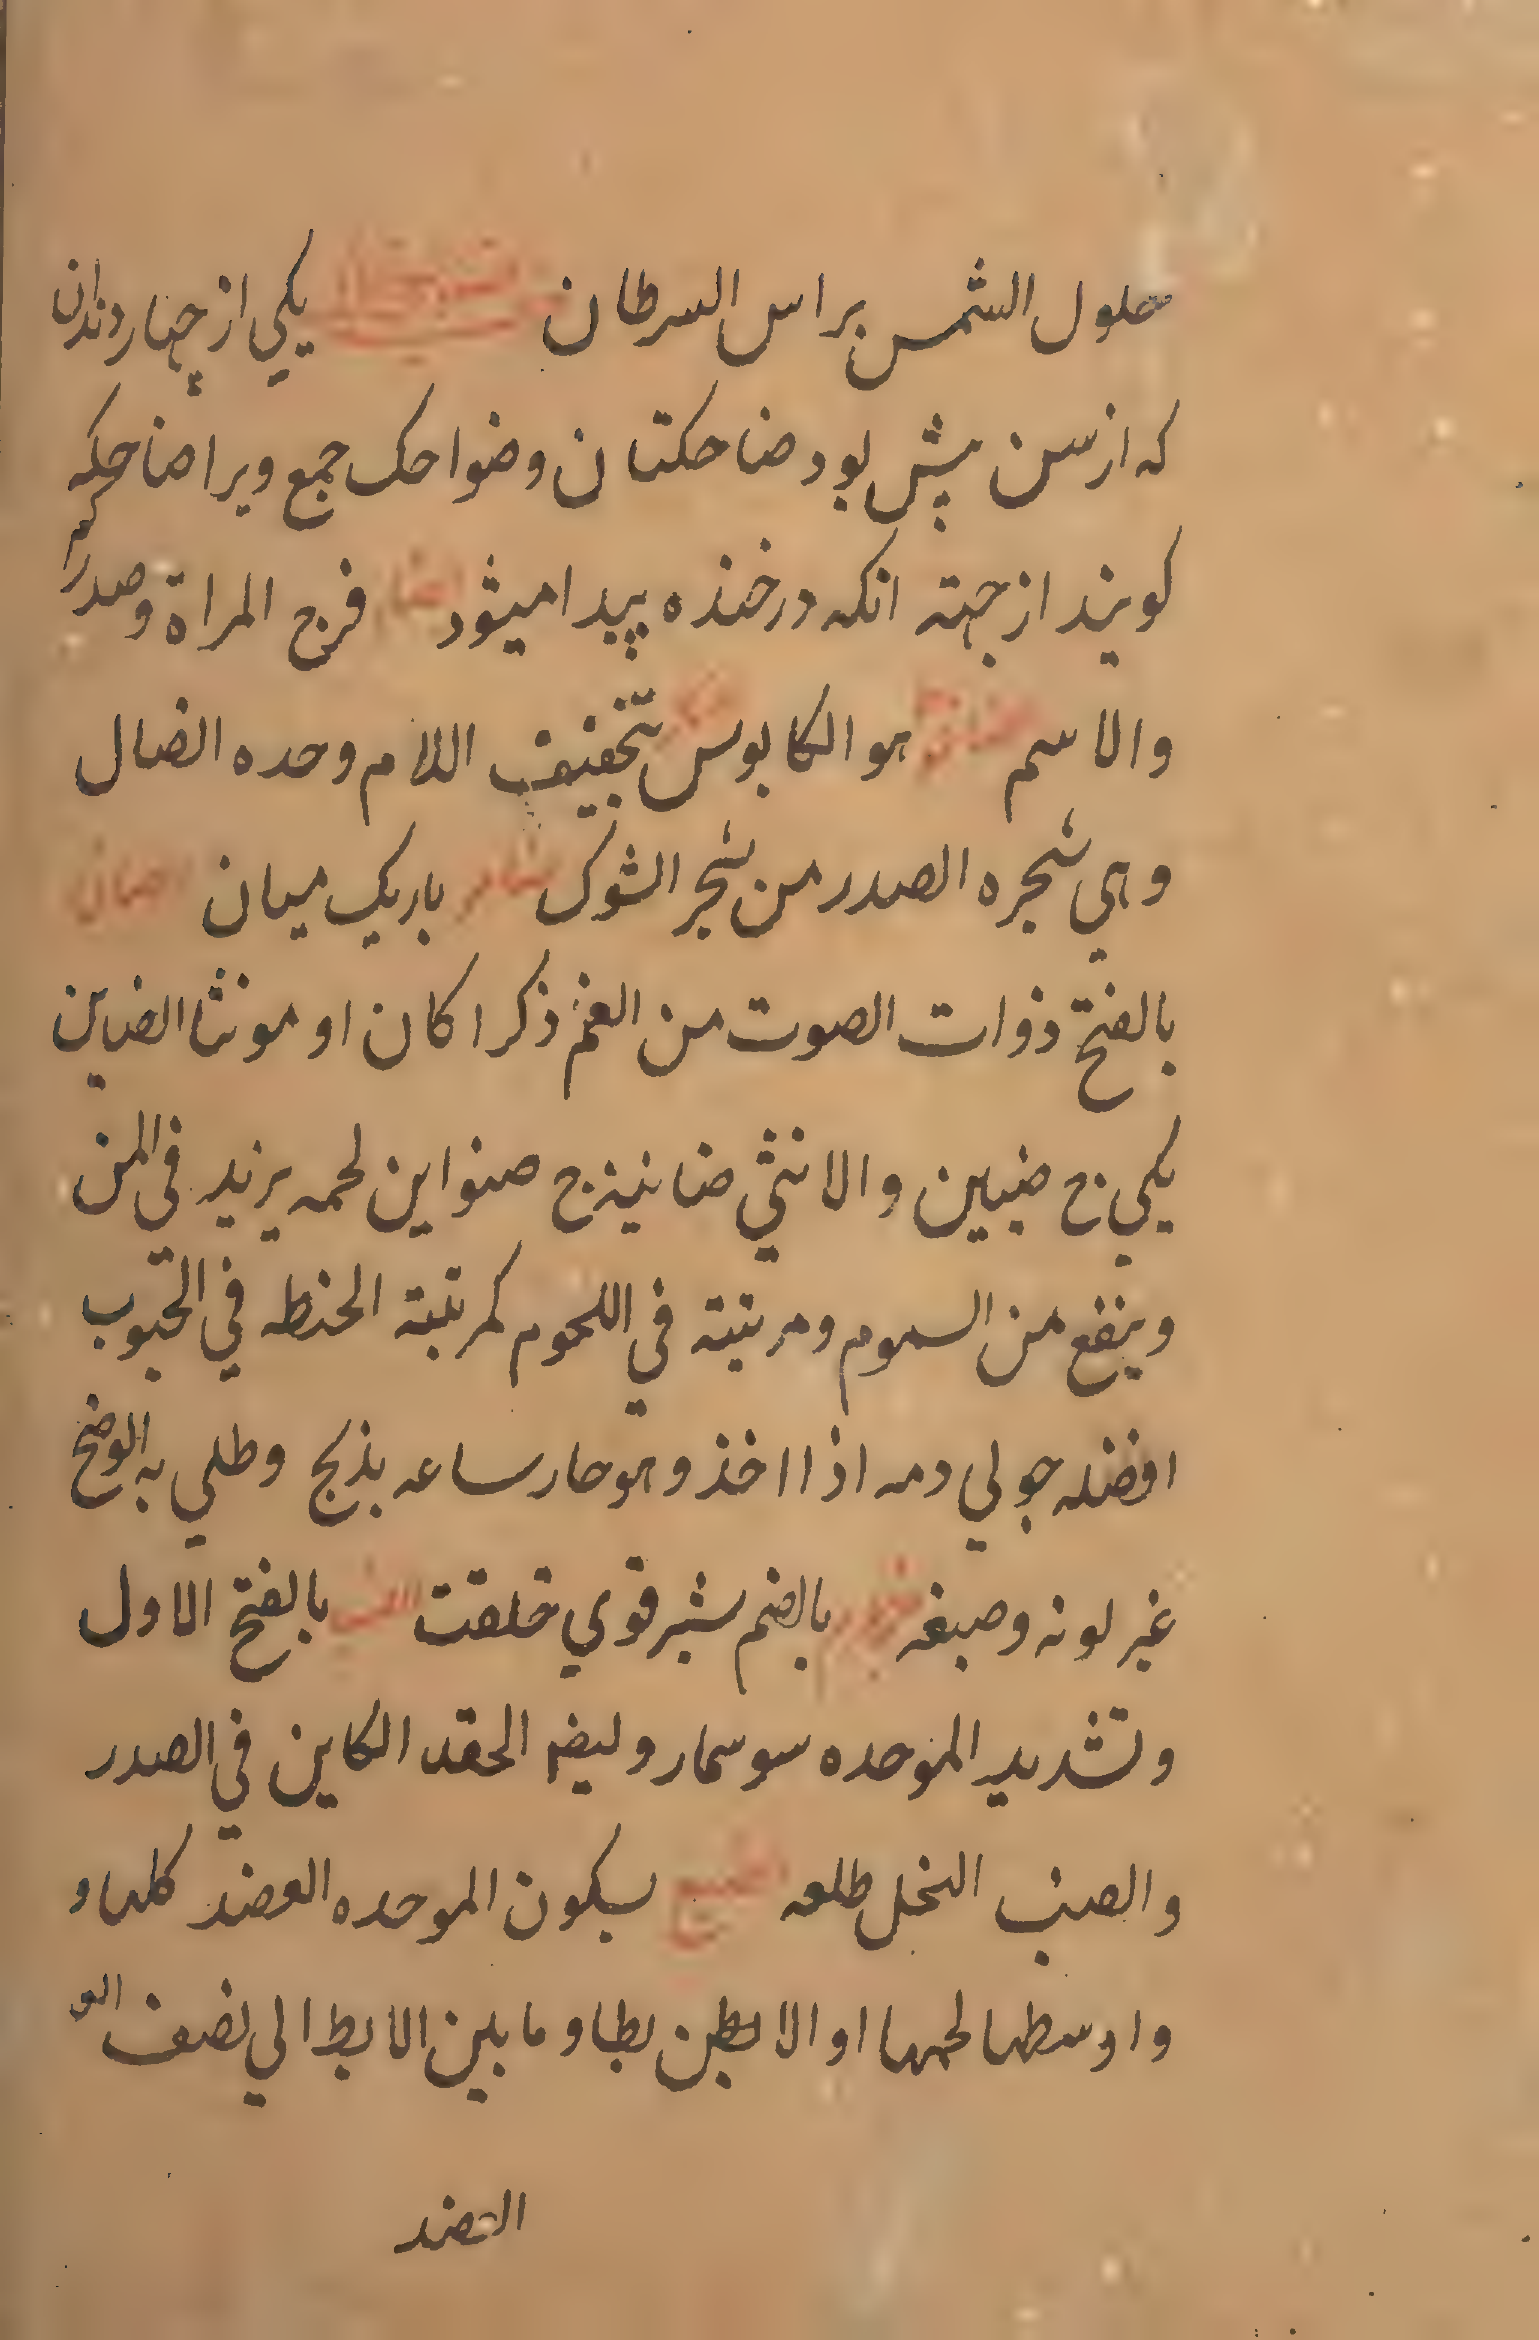 حلول الشمس براس السرطان یکي از چهار دندان
که از سن پیش بود ضاحکتان و ضواحک جمع ویرا ضاحکه
کویند از جهته انکه در خنده پیدا میشود فرج المراة و صدر
والاسم هو الکابوس بتخفیف اللام وحده الضال
وهي شجره الصدر من شجر الشوک ضامر باریک میان الضان
بالفتح ذوات الصوت من الغنم ذکرا کان او مونثا الضاین
یکي ج ضیین والانثي ضانیة ج ضواین لحمه یزید في المن
وینفع من السموم ومرتبته في اللحوم کمرتبة الحنطه في الحبوب
افضله حولي دمه اذا اخذ وهو حار ساعه یذبح وطلي به الوضح
غیر لونه وصبغه بالضم شیر قوي خلقت الضب بالفتح الاول
وتشدید الموحده سوسمار ولیضا الحقد الکاین في الصدر
والضب النخل طلعه الضبع بسکون الموحده العضد کلها و
واوسطها لحمها او الابطین بطا و ما بین الابط الي نصف
العضد